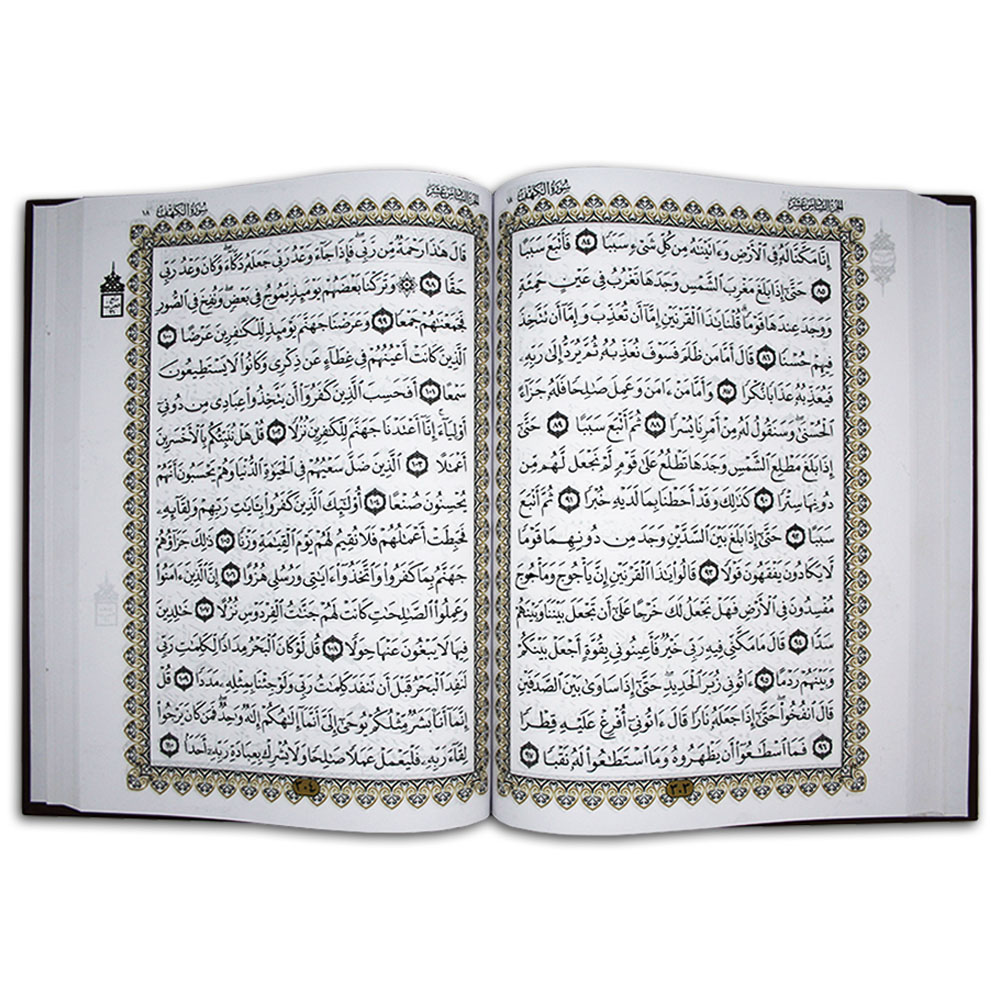 الجزء السادس عشر
سُورَةُ الكَهْفِ
١٨
إِنَّا مَكَّنَّا لَهُۥ فِى ٱلْأَرْضِ وَءَاتَيْنَٰهُ مِن كُلِّ شَىْءٍ سَبَبًا ٨٤ فَأَتْبَعَ سَبَبًا
٨٥ حَتَّىٰٓ إِذَا بَلَغَ مَغْرِبَ ٱلشَّمْسِ وَجَدَهَا تَغْرُبُ فِى عَيْنٍ حَمِئَةٍ
وَوَجَدَ عِندَهَا قَوْمًا ۗ قُلْنَا يَٰذَا ٱلْقَرْنَيْنِ إِمَّآ أَن تُعَذِّبَ وَإِمَّآ أَن تَتَّخِذَ
فِيهِمْ حُسْنًا ٨٦ قَالَ أَمَّا مَن ظَلَمَ فَسَوْفَ نُعَذِّبُهُۥ ثُمَّ يُرَدُّ إِلَىٰ رَبِّهِۦ
فَيُعَذِّبُهُۥ عَذَابًا نُّكْرًا ٨٧ وَأَمَّا مَنْ ءَامَنَ وَعَمِلَ صَٰلِحًا فَلَهُۥ جَزَآءً
ٱلْحُسْنَىٰ ۖ وَسَنَقُولُ لَهُۥ مِنْ أَمْرِنَا يُسْرًا ٨٨ ثُمَّ أَتْبَعَ سَبَبًا ٨٩ حَتَّىٰٓ
إِذَا بَلَغَ مَطْلِعَ ٱلشَّمْسِ وَجَدَهَا تَطْلُعُ عَلَىٰ قَوْمٍ لَّمْ نَجْعَل لَّهُم مِّن
دُونِهَا سِتْرًا ٩٠ كَذَٰلِكَ وَقَدْ أَحَطْنَا بِمَا لَدَيْهِ خُبْرًا ٩١ ثُمَّ أَتْبَعَ
سَبَبًا ٩٢ حَتَّىٰٓ إِذَا بَلَغَ بَيْنَ ٱلسَّدَّيْنِ وَجَدَ مِن دُونِهِمَا قَوْمًا
لَّا يَكَادُونَ يَفْقَهُونَ قَوْلًا ٩٣ قَالُوا۟ يَٰذَا ٱلْقَرْنَيْنِ إِنَّ يَأْجُوجَ وَمَأْجُوجَ
مُفْسِدُونَ فِى ٱلْأَرْضِ فَهَلْ نَجْعَلُ لَكَ خَرْجًا عَلَىٰٓ أَن تَجْعَلَ بَيْنَنَا وَبَيْنَهُمْ
سَدًّا ٩٤ قَالَ مَا مَكَّنِّى فِيهِ رَبِّى خَيْرٌ فَأَعِينُونِى بِقُوَّةٍ أَجْعَلْ بَيْنَكُمْ
وَبَيْنَهُمْ رَدْمًا ٩٥ ءَاتُونِى زُبَرَ ٱلْحَدِيدِ ۖ حَتَّىٰٓ إِذَا سَاوَىٰ بَيْنَ ٱلصَّدَفَيْنِ
قَالَ ٱنفُخُوا۟ ۖ حَتَّىٰٓ إِذَا جَعَلَهُۥ نَارًا قَالَ ءَاتُونِىٓ أُفْرِغْ عَلَيْهِ قِطْرًا
٩٦ فَمَا ٱسْطَٰعُوٓا۟ أَن يَظْهَرُوهُ وَمَا ٱسْتَطَٰعُوا۟ لَهُۥ نَقْبًا ٩٧
٣٠٣
الجزء السادس عشر
سُورَةُ الكَهْفِ
١٨
قَالَ هَٰذَا رَحْمَةٌ مِّن رَّبِّى ۖ فَإِذَا جَآءَ وَعْدُ رَبِّى جَعَلَهُۥ دَكَّآءَ ۖ وَكَانَ وَعْدُ رَبِّى
حَقًّا ٩٨ ۞ وَتَرَكْنَا بَعْضَهُمْ يَوْمَئِذٍ يَمُوجُ فِى بَعْضٍ ۖ وَنُفِخَ فِى ٱلصُّورِ
فَجَمَعْنَٰهُمْ جَمْعًا ٩٩ وَعَرَضْنَا جَهَنَّمَ يَوْمَئِذٍ لِّلْكَٰفِرِينَ عَرْضًا ١٠٠
ٱلَّذِينَ كَانَتْ أَعْيُنُهُمْ فِى غِطَآءٍ عَن ذِكْرِى وَكَانُوا۟ لَا يَسْتَطِيعُونَ
سَمْعًا ١٠١ أَفَحَسِبَ ٱلَّذِينَ كَفَرُوٓا۟ أَن يَتَّخِذُوا۟ عِبَادِى مِن دُونِىٓ
أَوْلِيَآءَ ۚ إِنَّآ أَعْتَدْنَا جَهَنَّمَ لِلْكَٰفِرِينَ نُزُلًا ١٠٢ قُلْ هَلْ نُنَبِّئُكُم بِٱلْأَخْسَرِينَ
أَعْمَٰلًا ١٠٣ ٱلَّذِينَ ضَلَّ سَعْيُهُمْ فِى ٱلْحَيَوٰةِ ٱلدُّنْيَا وَهُمْ يَحْسَبُونَ أَنَّهُمْ
يُحْسِنُونَ صُنْعًا ١٠٤ أُو۟لَٰٓئِكَ ٱلَّذِينَ كَفَرُوا۟ بِـَٔايَٰتِ رَبِّهِمْ وَلِقَآئِهِۦ
فَحَبِطَتْ أَعْمَٰلُهُمْ فَلَا نُقِيمُ لَهُمْ يَوْمَ ٱلْقِيَٰمَةِ وَزْنًا ١٠٥ ذَٰلِكَ جَزَآؤُهُمْ
جَهَنَّمُ بِمَا كَفَرُوا۟ وَٱتَّخَذُوٓا۟ ءَايَٰتِى وَرُسُلِى هُزُوًا ١٠٦ إِنَّ ٱلَّذِينَ ءَامَنُوا۟
وَعَمِلُوا۟ ٱلصَّٰلِحَٰتِ كَانَتْ لَهُمْ جَنَّٰتُ ٱلْفِرْدَوْسِ نُزُلًا ١٠٧ خَٰلِدِينَ
فِيهَا لَا يَبْغُونَ عَنْهَا حِوَلًا ١٠٨ قُل لَّوْ كَانَ ٱلْبَحْرُ مِدَادًا لِّكَلِمَٰتِ رَبِّى
لَنَفِدَ ٱلْبَحْرُ قَبْلَ أَن تَنفَدَ كَلِمَٰتُ رَبِّى وَلَوْ جِئْنَا بِمِثْلِهِۦ مَدَدًا ١٠٩ قُلْ
إِنَّمَآ أَنَا۠ بَشَرٌ مِّثْلُكُمْ يُوحَىٰٓ إِلَىَّ أَنَّمَآ إِلَٰهُكُمْ إِلَٰهٌ وَٰحِدٌ ۖ فَمَن كَانَ يَرْجُوا۟
لِقَآءَ رَبِّهِۦ فَلْيَعْمَلْ عَمَلًا صَٰلِحًا وَلَا يُشْرِكْ بِعِبَادَةِ رَبِّهِۦٓ أَحَدًۢا ١١٠
٣٠٤